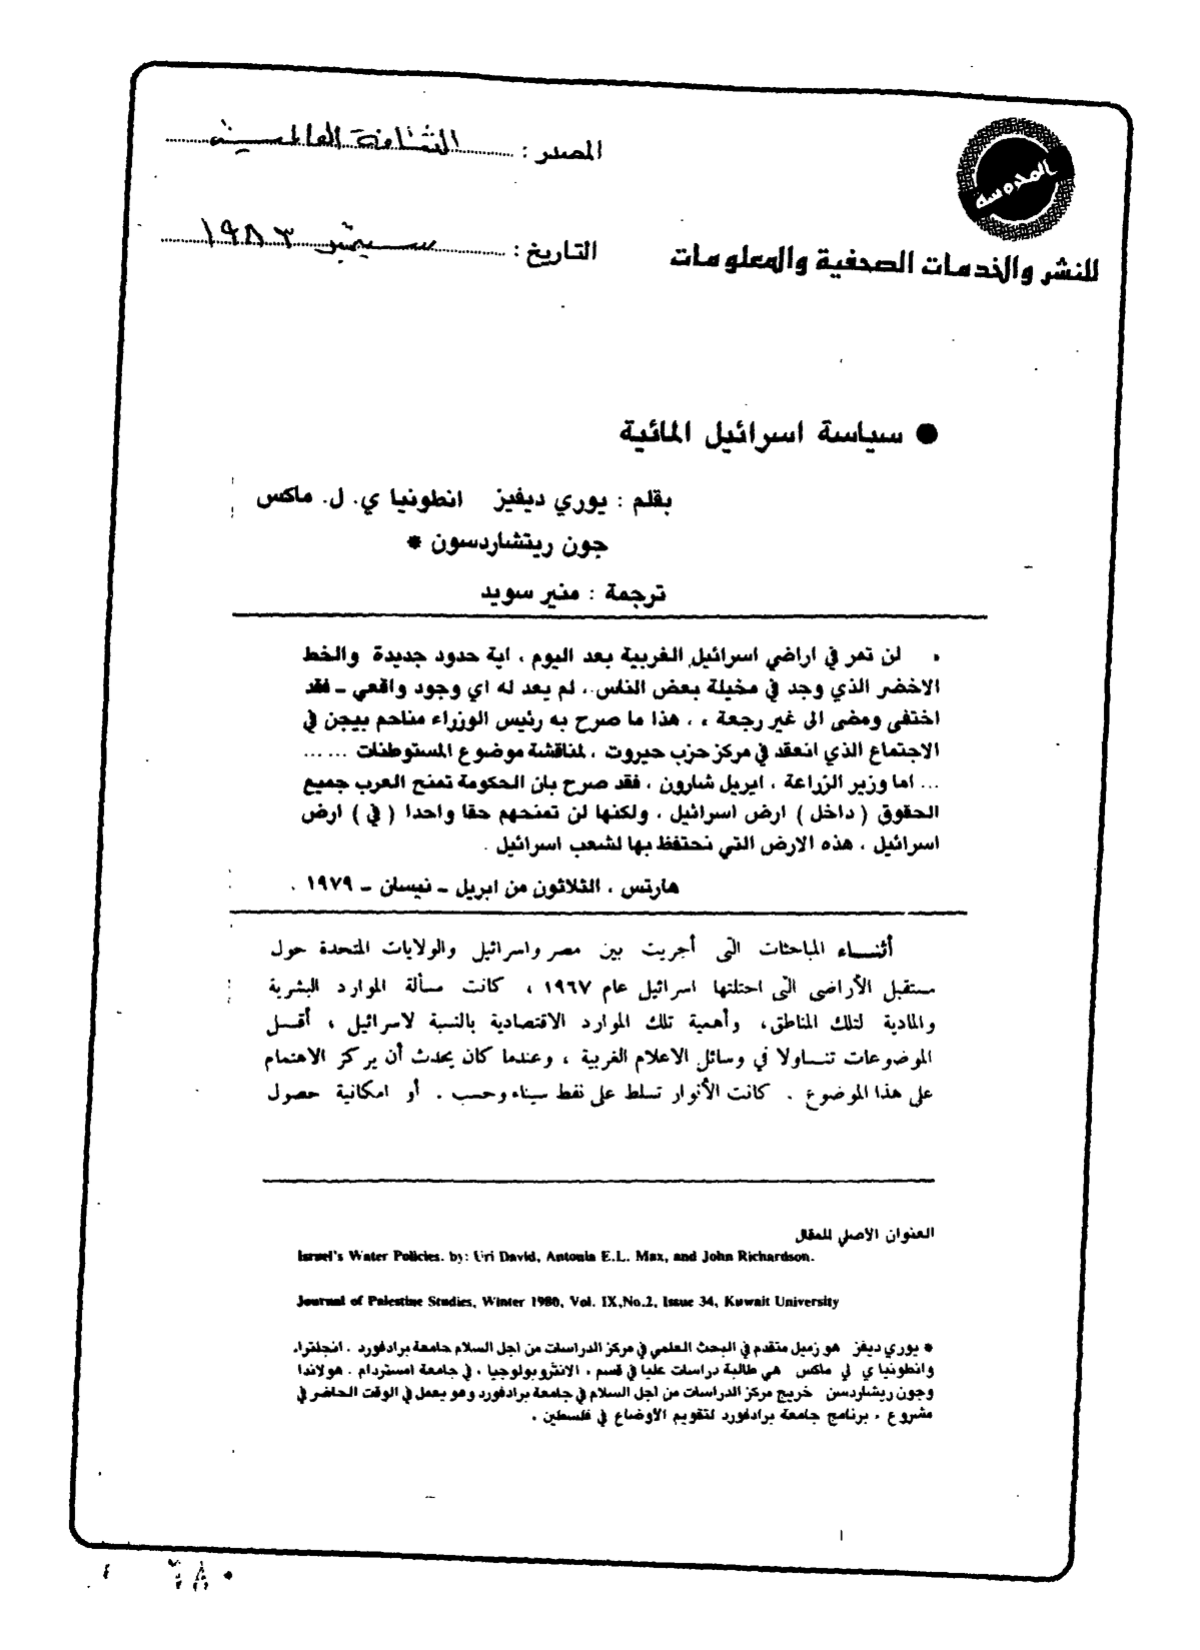 المحروسة
للنشر والخدمات الصحفية والمعلومات
المصدر : الثقافة العالمية
التاريخ : سبتمبر ١٩٨٣
● سياسة اسرائيل المائية
بقلم : يوري ديفيز انطونيا ي. ل. ماكس
جون ريتشاردسون *
ترجمة : منير سويد
« لن تمر في اراضي اسرائيل الغربية بعد اليوم ، اية حدود جديدة والخط
الاخضر الذي وجد في مخيلة بعض الناس ، لم يعد له اي وجود واقعي ــ فقد
اختفى ومضى الى غير رجعة » ، هذا ما صرح به رئيس الوزراء مناحم بيجن في
الاجتماع الذي انعقد في مركز حزب حيروت ، لمناقشة موضوع المستوطنات ... ...
... اما وزير الزراعة ، ايريل شارون ، فقد صرح بان الحكومة تمنح العرب جميع
الحقوق ( داخل ) ارض اسرائيل ، ولكنها لن تمنحهم حقا واحدا ( في ) ارض
اسرائيل ، هذه الارض التي نحتفظ بها لشعب اسرائيل .
هارتس ، الثلاثون من ابريل ــ نيسان ــ ١٩٧٩ .
أثنـــاء المباحثات التى أجريت بين مصر واسرائيل والولايات المتحدة حول
مستقبل الأراضى التى احتلتها اسرائيل عام ١٩٦٧ ، كانت مسألة الموارد البشرية
والمادية لتلك المناطق، وأهمية تلك الموارد الاقتصادية بالنسبة لاسرائيل ، أقــل
الموضوعات تنــاولا في وسائل الاعلام الغربية ، وعندما كان يحدث أن يركز الاهتمام
على هذا الموضوع . كانت الأنوار تسلط على نفط سيناء وحسب . أو امكانية حصول
العنوان الاصلي للمقال
Israel's Water Policies. by: Uri David, Antonia E.L. Max, and John Richardson.
Journal of Palestine Studies, Winter 1980, Vol. IX,No.2, Issue 34, Kuwait University
* يوري ديفز هو زميل متقدم في البحث العلمي في مركز الدراسات من اجل السلام جامعة برادفورد . انجلترا.
وانطونيا ي لي ماكس هي طالبة دراسات عليا في قسم ، الانثروبولوجيا ، في جامعة امستردام . هولاندا
وجون ريشاردسن خريج مركز الدراسات من اجل السلام في جامعة برادفورد وهو يعمل في الوقت الحاضر في
مشروع ، برنامج جامعة برادفورد لتقويم الأوضاع في فلسطين .